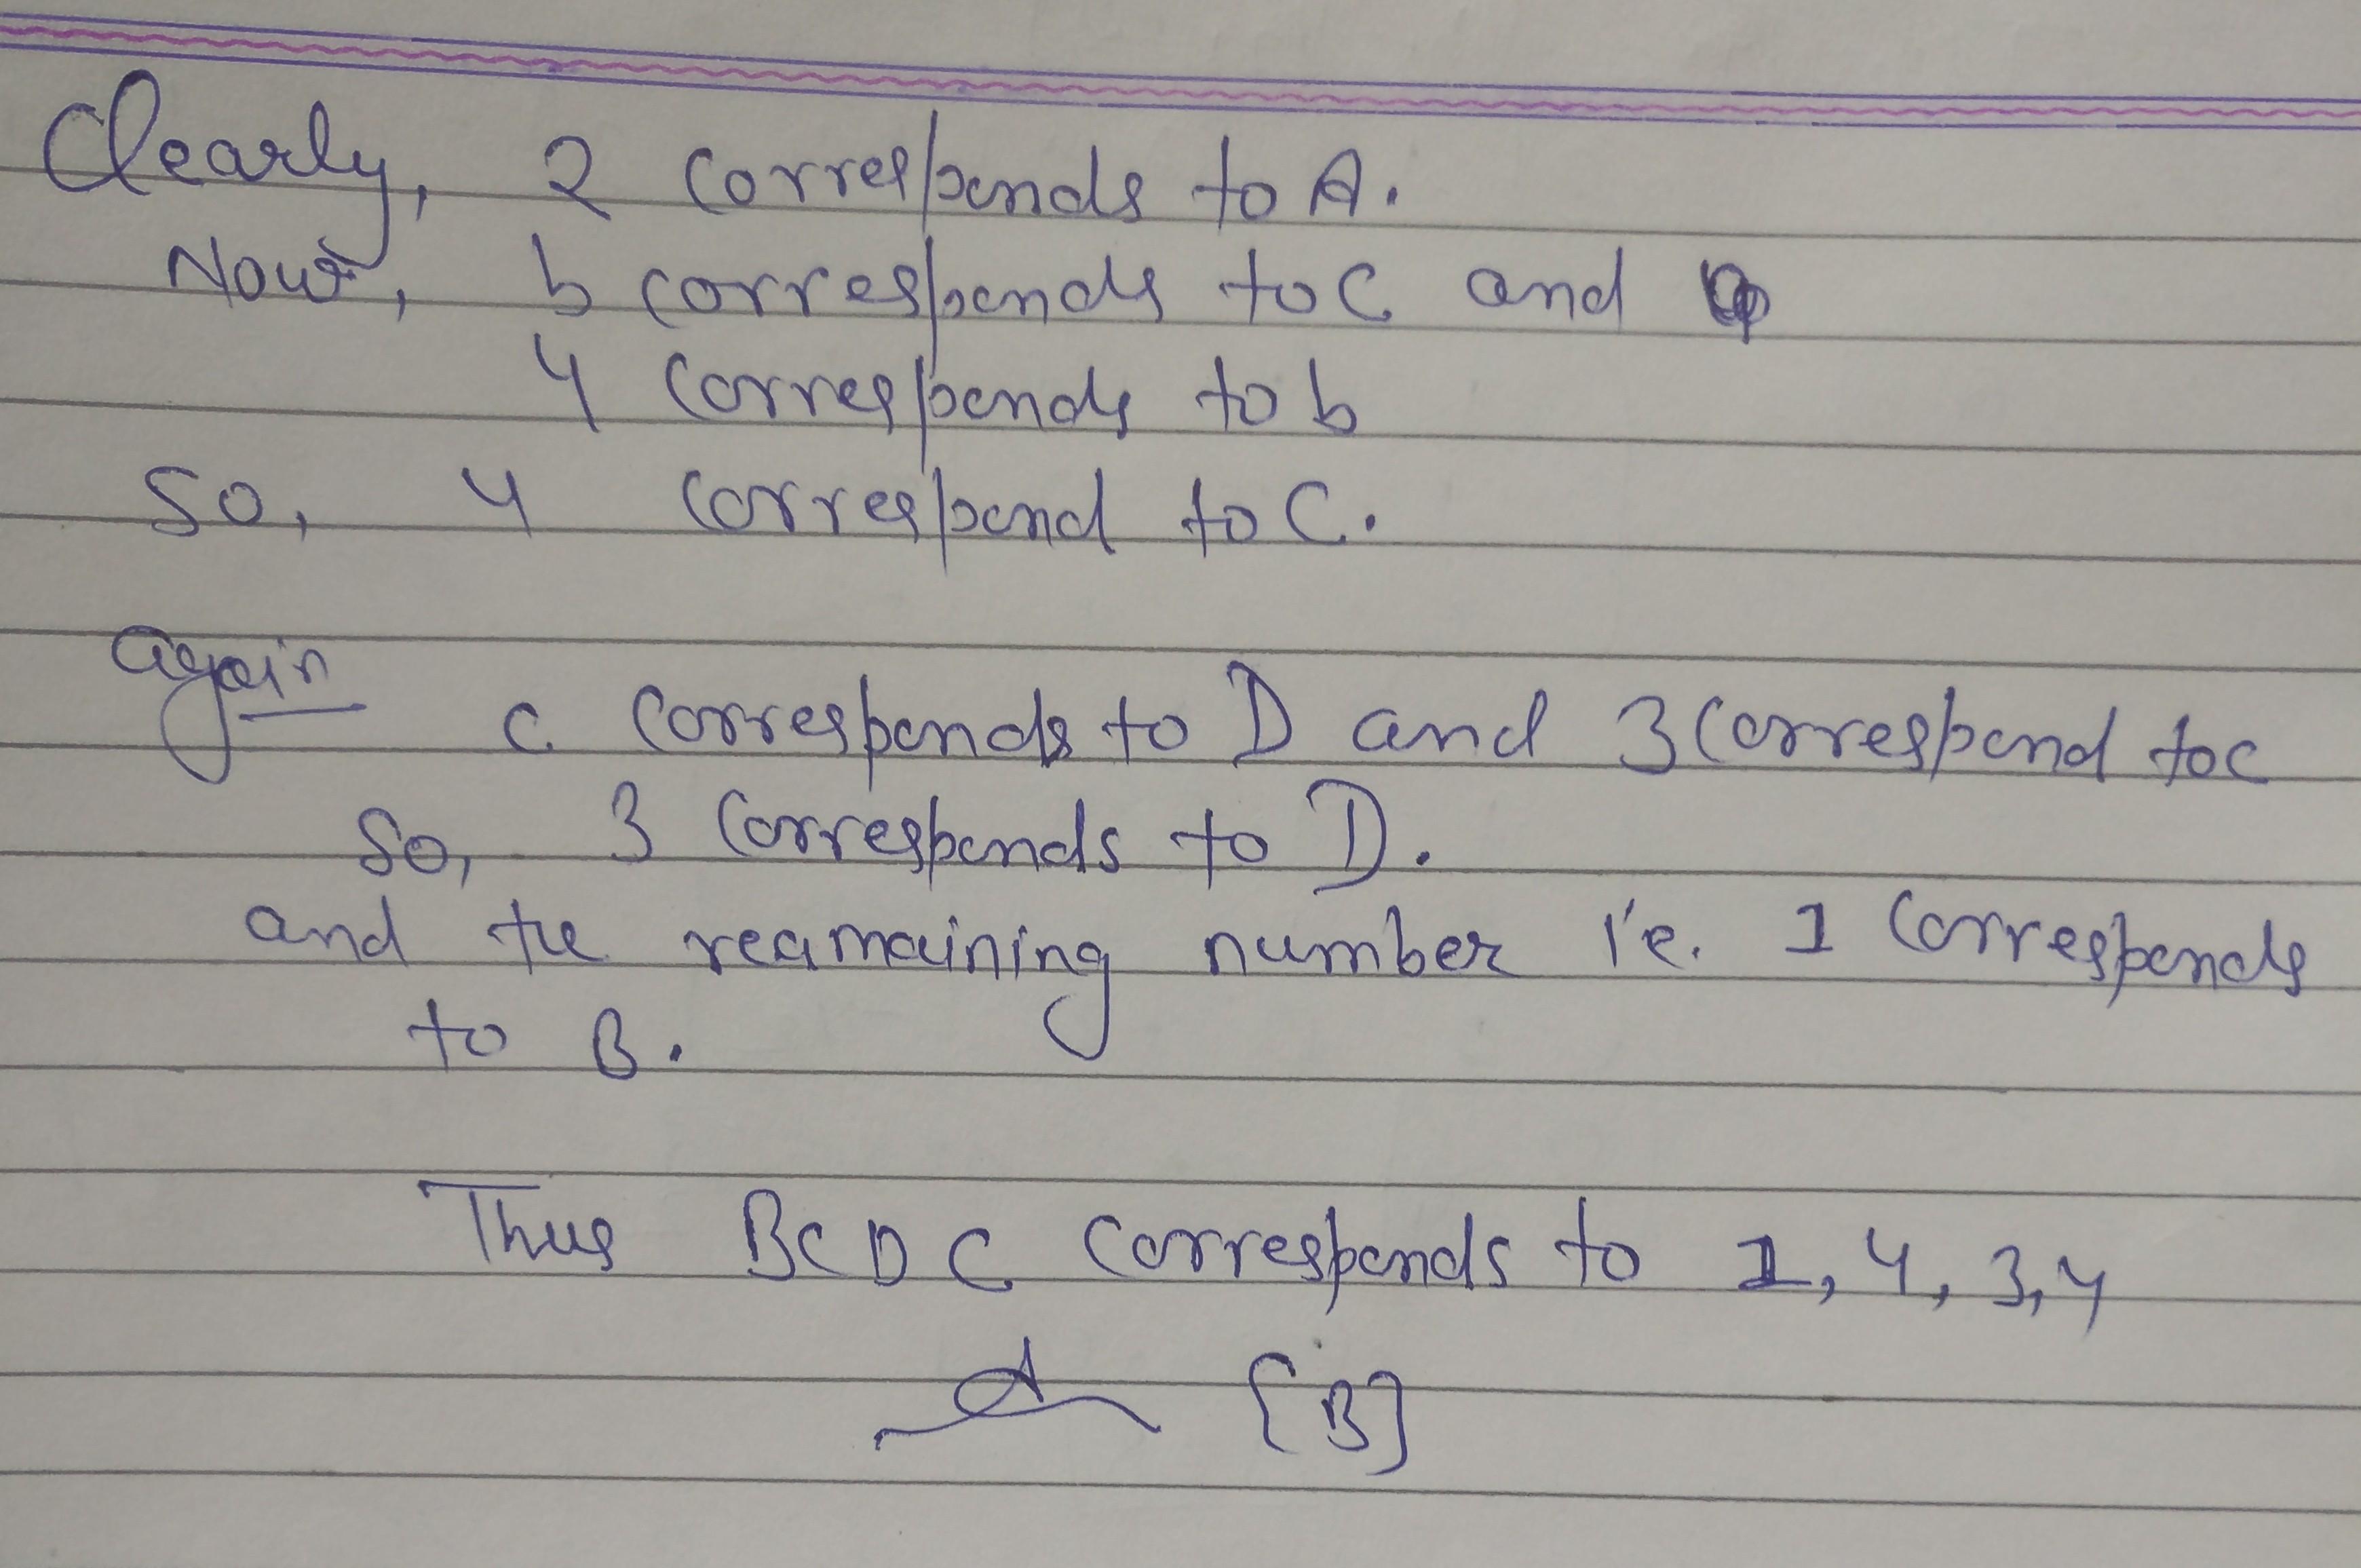 Clearly, 2 corresponds to A.
Now, b corresponds to C and
4 corresponds to b
So, 4 correspond to C.
Again c corresponds to D and 3 correspond to c
So, 3 corresponds to D.
and the reamaining number i.e. 1 corresponds
to B.
Thus BCDC corresponds to 1, 4, 3, 4
[B]